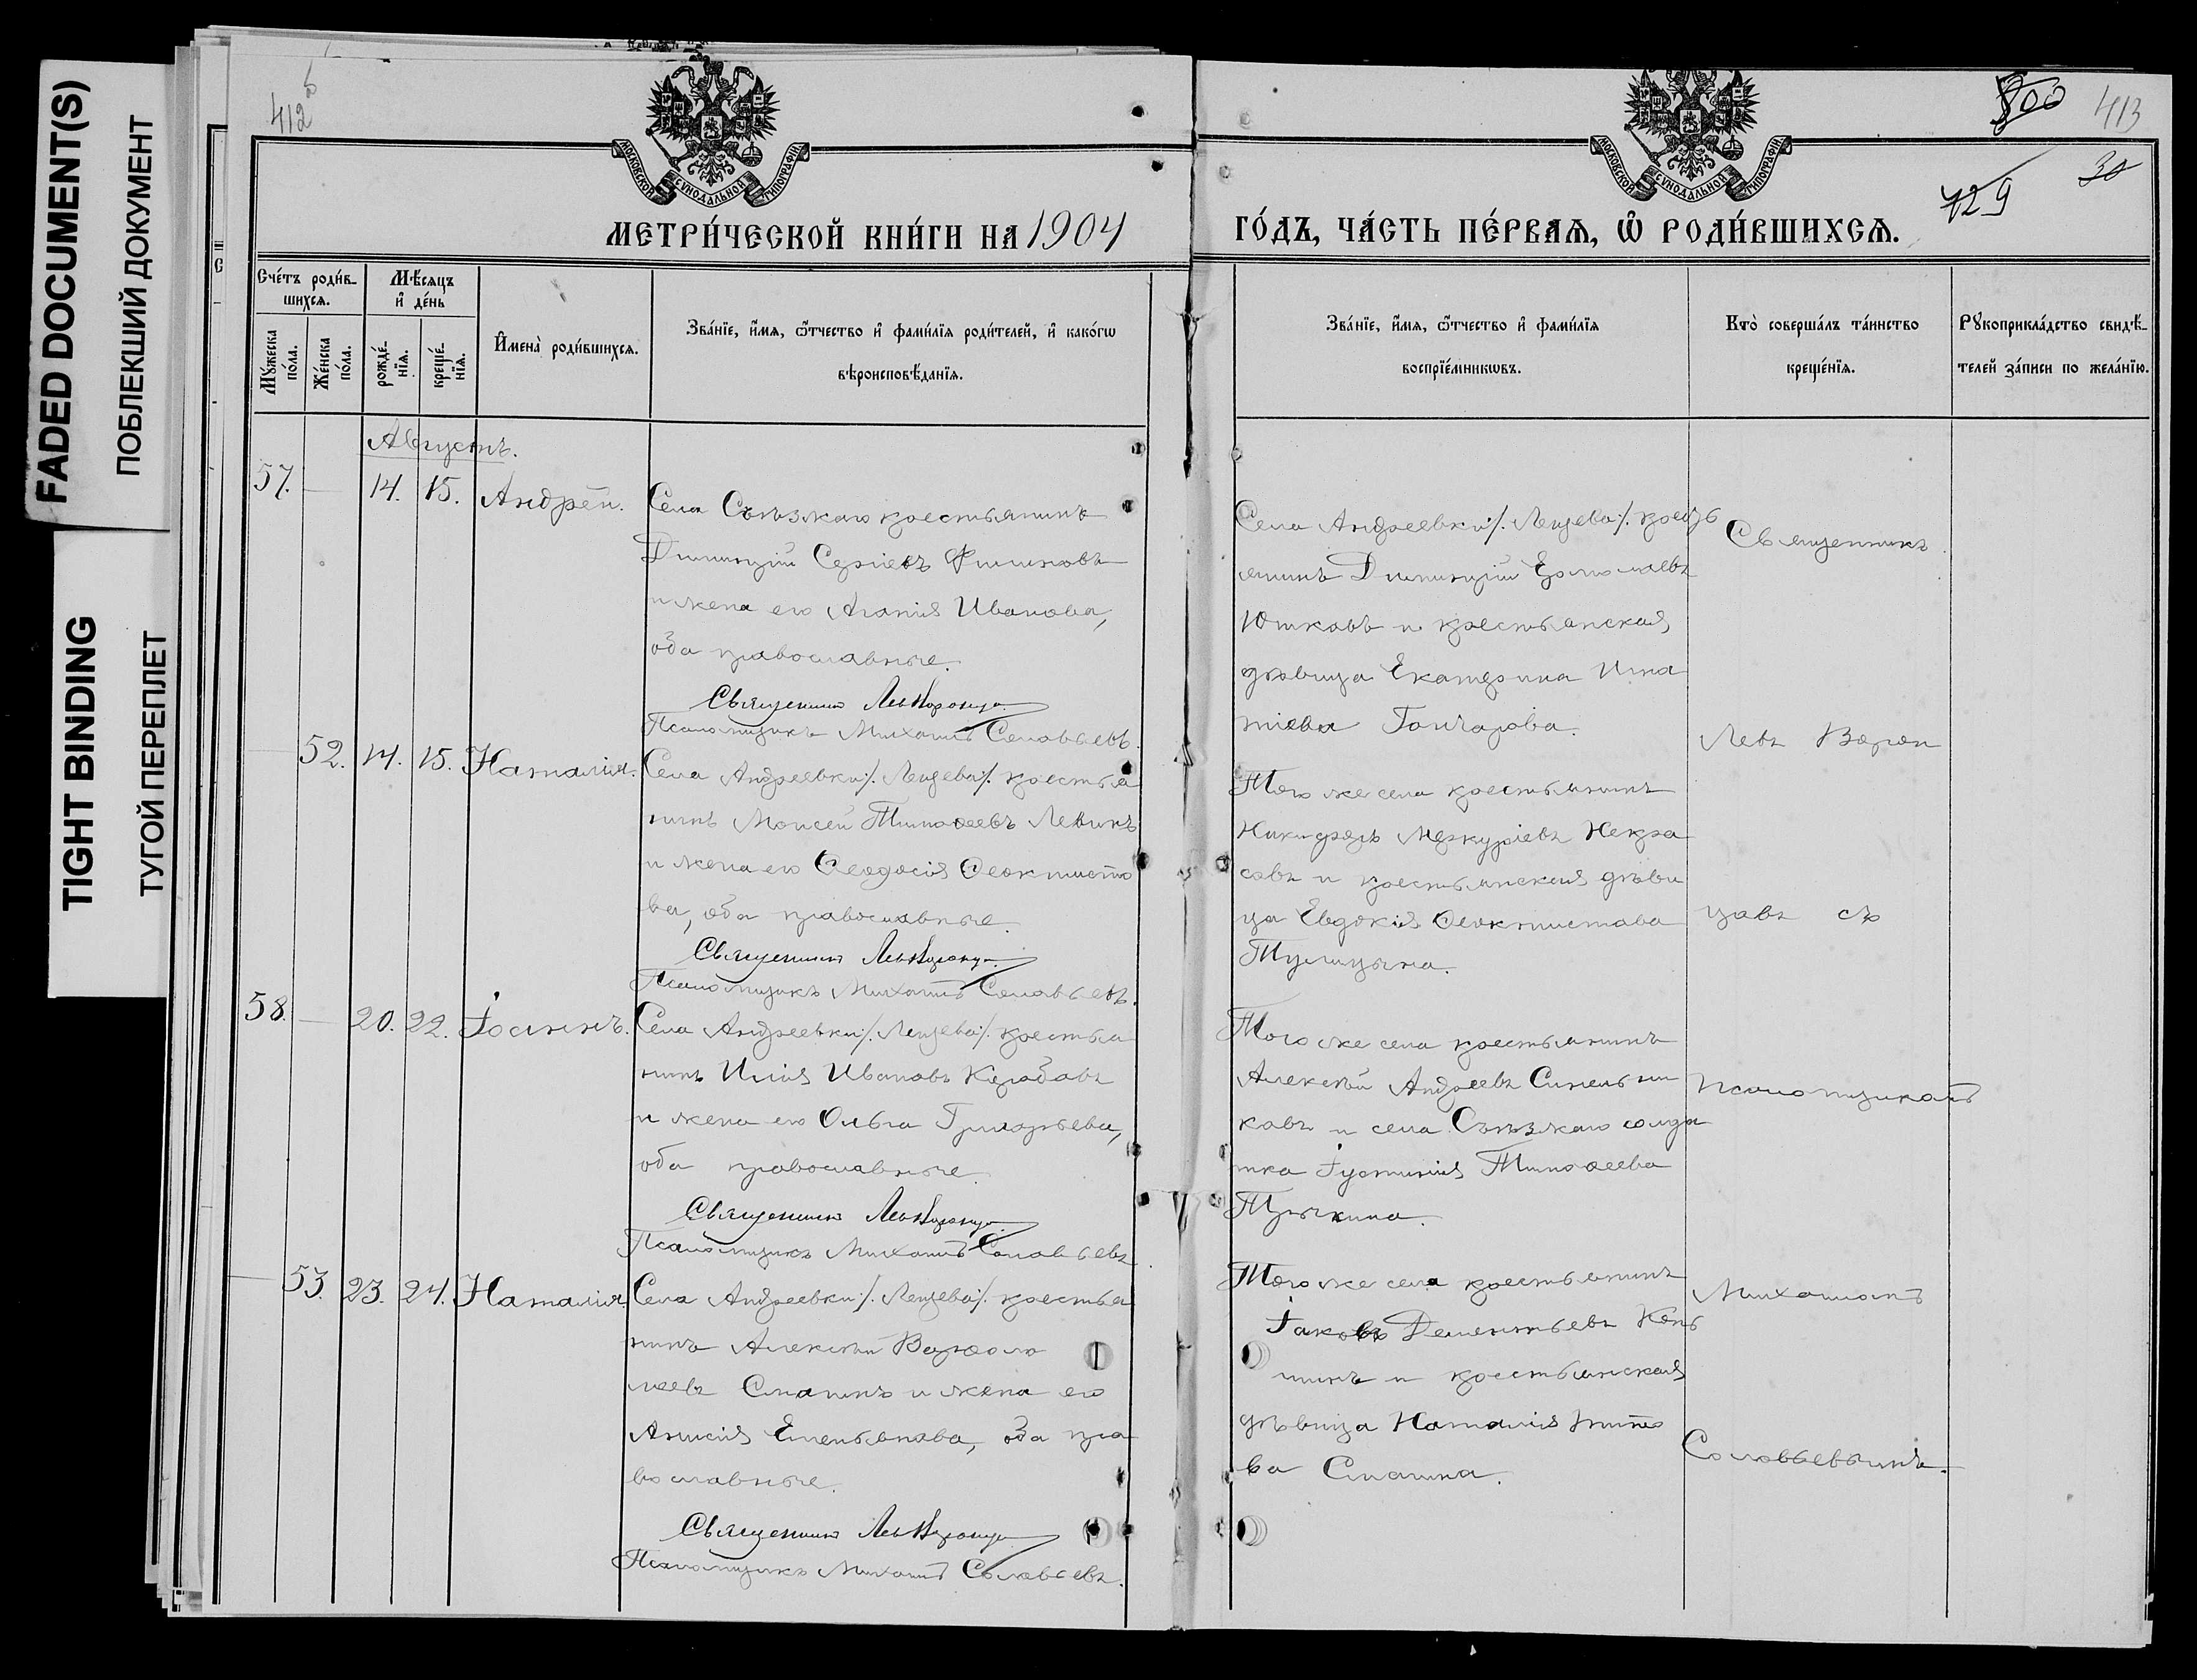 FADED DOCUMENT(S)
ПОБЛЕКШИЙ ДОКУМЕНТ
TIGHT BINDING
ТУГОЙ ПЕРЕПЛЕТ
412
МОСКОВСКОЙ СѴНОДАЛЬНОЙ ТИПОГРАФІИ
МЕТРИ́ЧЕСКОЙ КНИ́ГИ НА 1904
Сче́тъ роди́в-
шихсѧ.
Мѣ́сѧцъ
и҆ де́нь
Мꙋ́жеска
по́ла.
Же́нска
по́ла.
рожде́-
нїѧ.
креще́-
нїѧ.
И҆мена̀ роди́вшихсѧ.
Зва́нїе, и҆́мѧ, ѻ҆́тчество и҆ фами́лїѧ роди́телей, и҆ како́гѡ
вѣроисповѣ́данїѧ.
Августъ.
57. — 14. 15. Андрей.
Села Съѣзжаго крестьянинъ
Димитрій Сергіевъ Филиновъ
и жена его Агапія Иванова,
оба православные.
Священникъ Левъ Воронцо
Псаломщикъ Михаилъ Соловьевъ.
— 52. 14. 15. Наталія.
Села Андреевки /. Лещева /. крестья
нинъ Моисей Тимоѳеевъ Левинъ
и жена его Ѳеодосія Ѳеоктисто
ва, оба православные.
Священникъ Левъ Воронцо
Псаломщикъ Михаилъ Соловьевъ.
58. — 20. 22. Іоаннъ.
Села Андреевки /. Лещева /. крестья
нинъ Илія Ивановъ Коробовъ
и жена его Ольга Григорьева,
оба православные.
Священникъ Левъ Воронцо
Псаломщикъ Михаилъ Соловьевъ
— 53. 23. 24. Наталія.
Села Андреевки /. Лещева /. крестья
нинъ Алексѣй Варѳоло
меевъ Смагинъ и жена его
Анисія Емельянова, оба пра
вославные.
Священникъ Левъ Воронцо
Псаломщикъ Михаилъ Соловьевъ.
413
30
129
МОСКОВСКОЙ СѴНОДАЛЬНОЙ ТИПОГРАФІИ
ГО́ДЪ, ЧА́СТЬ ПЕ́РВАѦ, Ѽ РОДИ́ВШИХСѦ.
Зва́нїе, и҆́мѧ, ѻ҆́тчество и҆ фами́лїѧ
воспрїе́мникѡвъ.
Кто̀ соверша́лъ та́инство
креще́нїѧ.
Рꙋкоприкла́дство свидѣ́-
телей за́писи по жела́нїю.
Села Андреевки /. Лещева /. кресть
янинъ Димитрій Ермолаевъ
Юшковъ и крестьянская
дѣвица Екатерина Игна
тіева Гончарова.
Того же села крестьянинъ
Никифоръ Меркуріевъ Некра
совъ и крестьянская дѣви
ца Евдокія Ѳеоктистова
Тулицына.
Того же села крестьянинъ
Алексѣй Андреевъ Синельни
ковъ и села Съѣзжаго солда
тка Іустинія Тимоѳеева
Того же села крестьянинъ
Іаковъ Дементьевъ Конь
шинъ и крестьянская
дѣвица Наталія Тито
ва Смагина.
Священникъ
Левъ Ворон
цовъ съ
псаломщикомъ
Михаиломъ
Соловьевымъ.